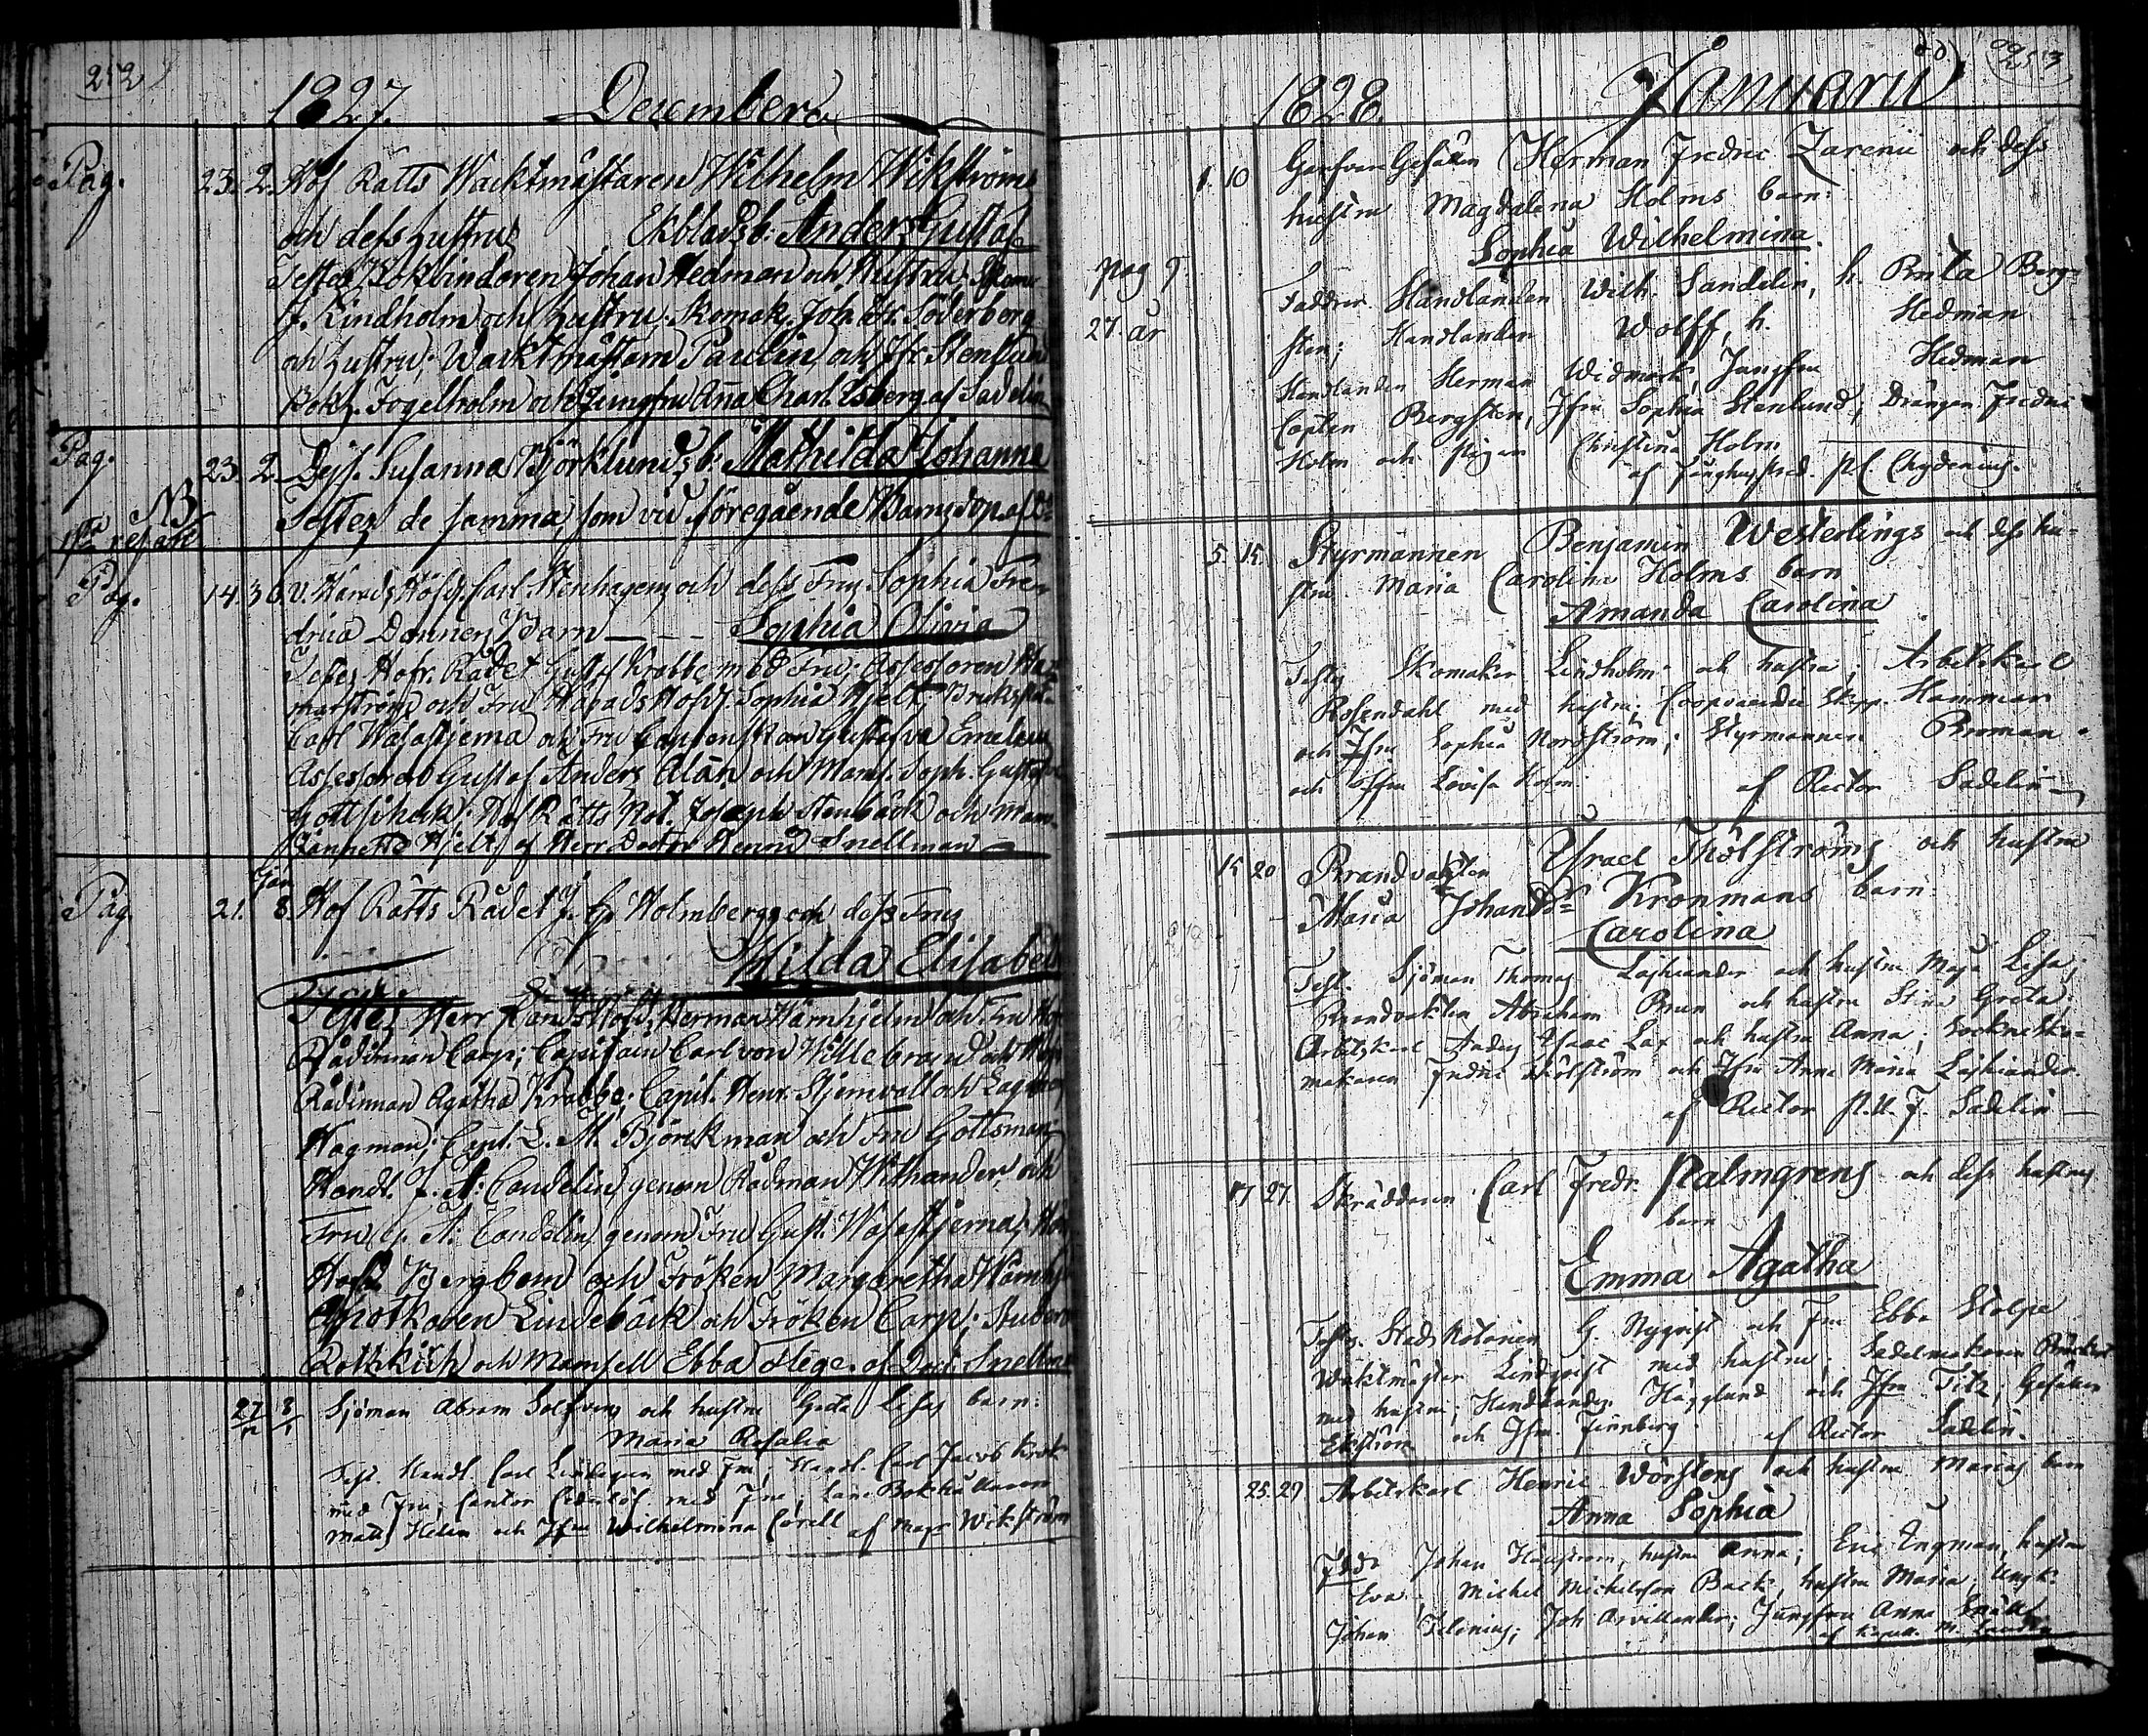 252
1827. December
Pag. 23. 2. Hof Rätts Wacktmästaren Wilhelm Wikströms
och dess hustrus Ekblads b: Anders Gustaf
Testes Bokbinderen Johan Hedman och Hustru; Skom:
J. Lindholm och hustru; Skomak. Joh. Fr. Söderberg
och hustru; Wacktmästarn Paulin och Jfr Stenlund
Bokh. Fogelholm och Jungfru Aña Charl. Esberg af Sadelin
Pag. 23. 2. Susanna Björklunds b: Mathilda Johanna
NB
Testes de samma, som vid föregående Barns dop. af
Pag. 14. 30. V. Härads Höfd. Carl Stenhagens och dess Frus Sophia Fre-
drica Donners Barn - - - Sophia Olivia
Testes Hofr. Rådet Gust. Krabbe med Fru; Assessoren Ha
marström och Fru Härads Höfd. Sophia Hjelt; Bruks
Carl Wasastjerna och Fru
Assessoren Gustaf Anders Alán och Mams. Soph. Gust
Gottschalk; Hof Rätts Not. Joseph Stenbäck och Mam.
Jannette Hjelt af Herr Doctor Snellman
Jan
Pag. 21. 8. Hof Rätts Rådet J. G. Holmbergs och dess Frus
Hilda Elisabeth
Testes Herr Lands Höfd. Herman Wärnhjelm och Fru Hof
Rådinnan Carp; Capitain Carl von Willebrand och Hof
Rådinnan Agatha Krabbe; Capit. Henr. Stjernvall och Lagman
Hagman; Capt. L. M. Björkman och Fru Gottsman;
Handl. J. A: Candelin genom Rådman Withander, och
Fru C. A: Candelin genom Fru Gust. Wasastjerna; Här
Höfd Bergbom och Fröken Margaretha Wärnhj
Apothekaren Lindebäck och Fröken Carp; Student
Rothkirch och Mamsell Ebba Hege. af Doct. Snellman
27/12 3/1 Sjöman Abram Solfvens och hustru Greta Lisas barn:
Maria Rosalia
Test. Handl. Carl Lindegren med Fru; Handl. Carl Jacob Krok
med Fru; Cantor Cederlöf med Fru; Bokhållaren
Matts Helen och Jfru Wilhelmina Corell af Mag: Wikström

253
1828. Januarii
1. 10 Garfvare Gesällen Herman Fredric Zarenii och dess
hustru Magdalena Holms barn:
Sophia Wilhelmina.
pag 9
27. år
Faddrar Handlanden Wilh. Sandelin, h. Brita Berg-
sten; Handlanden Wolff, h. Hedman
Handlanden Herman Widmark, Jungfru Hedman
Capten Bergsten, Jfru Sophia Stenlund, Drängen Fredric
Holm och pigan Christina Holm
af P Chydenius.
5. 15. Styrmannen Benjamin Westerlings och dess hu-
stru Maria Carolina Holms barn
Amanda Carolina
Testes Skomakar Lindholm och hustru; Arbetskarl
Rosendahl med hustru; Coopvaerdie Skepp. Hammar
och Jfru Sophia Nordström; Styrmannen Broman
och Jfru Lovisa Holm af Rector Sadelin
15 20 Brandvakten Israel Thölströms och hustru
Maria Johansdr Kronmans barn:
Carolina
Test. Sjöman Thomas och hustru Maja Lisa;
Brandvakten Abraham Brun och hustru Stina Greta;
Arbetskarl Isaac Lax och hustru Anna; Socknesko-
makaren Fredric Thölström och Jfru Anna Maria
af Rector N. F. Sadelin
17 27. Skräddaren Carl Fredr. Palmgrens och dess hustrus
barn
Emma Agatha
Testes Stads Notarien G. Nyqvist och Fru Ebba Stolpe
Waktmäster Lindqvist med hustru; Sadelmakaren
med hustru; Handlanden Hägglund och Jfru Titz; Gesällen
Ekström och Jfru Finnberg af Rector Sadelin.
25. 29 Arbetskarl Henric Wörstens och hustru Marias barn
Anna Sophia
Fadd: Johan hustru Anna; Eric Engman, hustru
Eva; Michel Michelsson Back, hustru Maria; Ungk.
Johan Joh Arvillander; Jungfru Anna Snäll